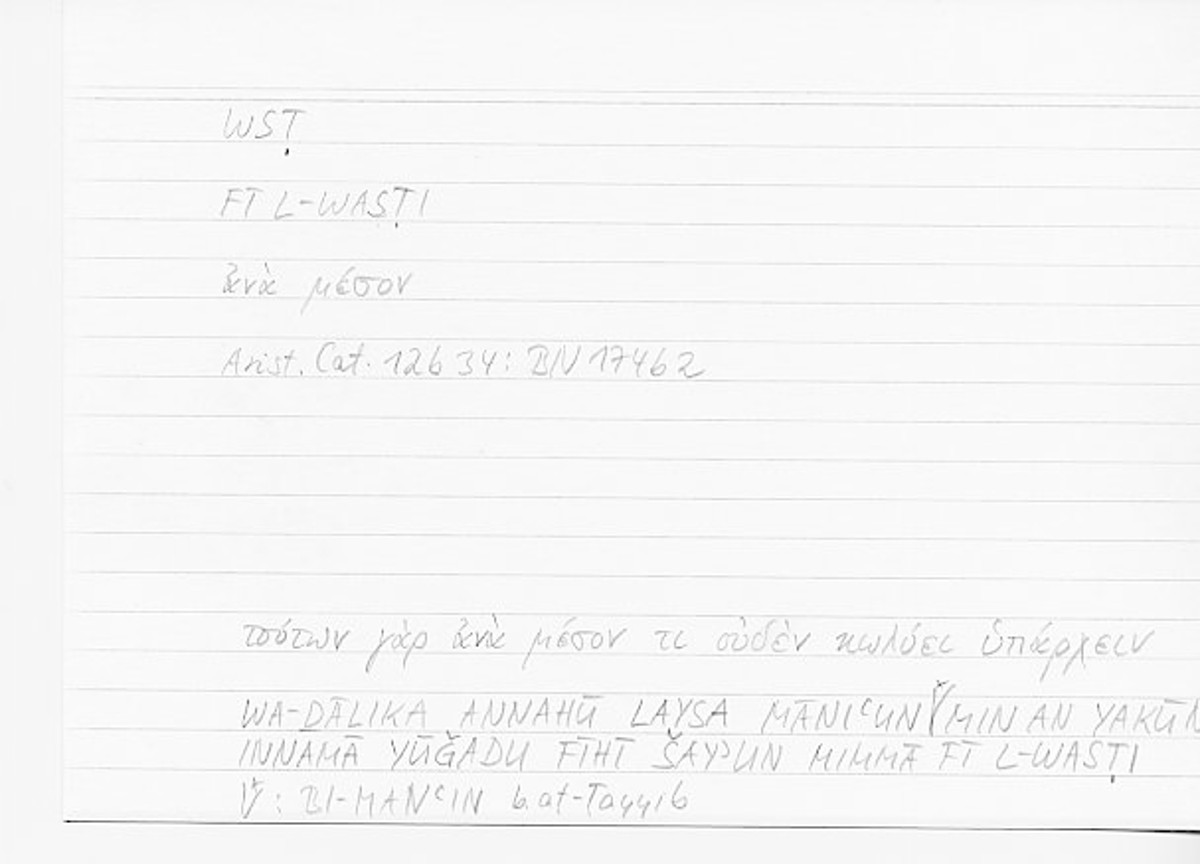 WSṬ
FĪ L-WASṬI
ἀνὰ μέσον
Arist. Cat. 12b34: BN 174b2
τούτων γὰρ ἀνὰ μέσον τι οὐδὲν κωλύει ὑπάρχειν
WA-ḎĀLIKA ANNAHŪ LAYSA MĀNIʿUN MIN AN
INNAMĀ YŪǦADU FĪHĪ ŠAYʾUN MIMMĀ FĪ L-WASṬI
: BI-MANʿIN b.aṭ-Ṭayyib